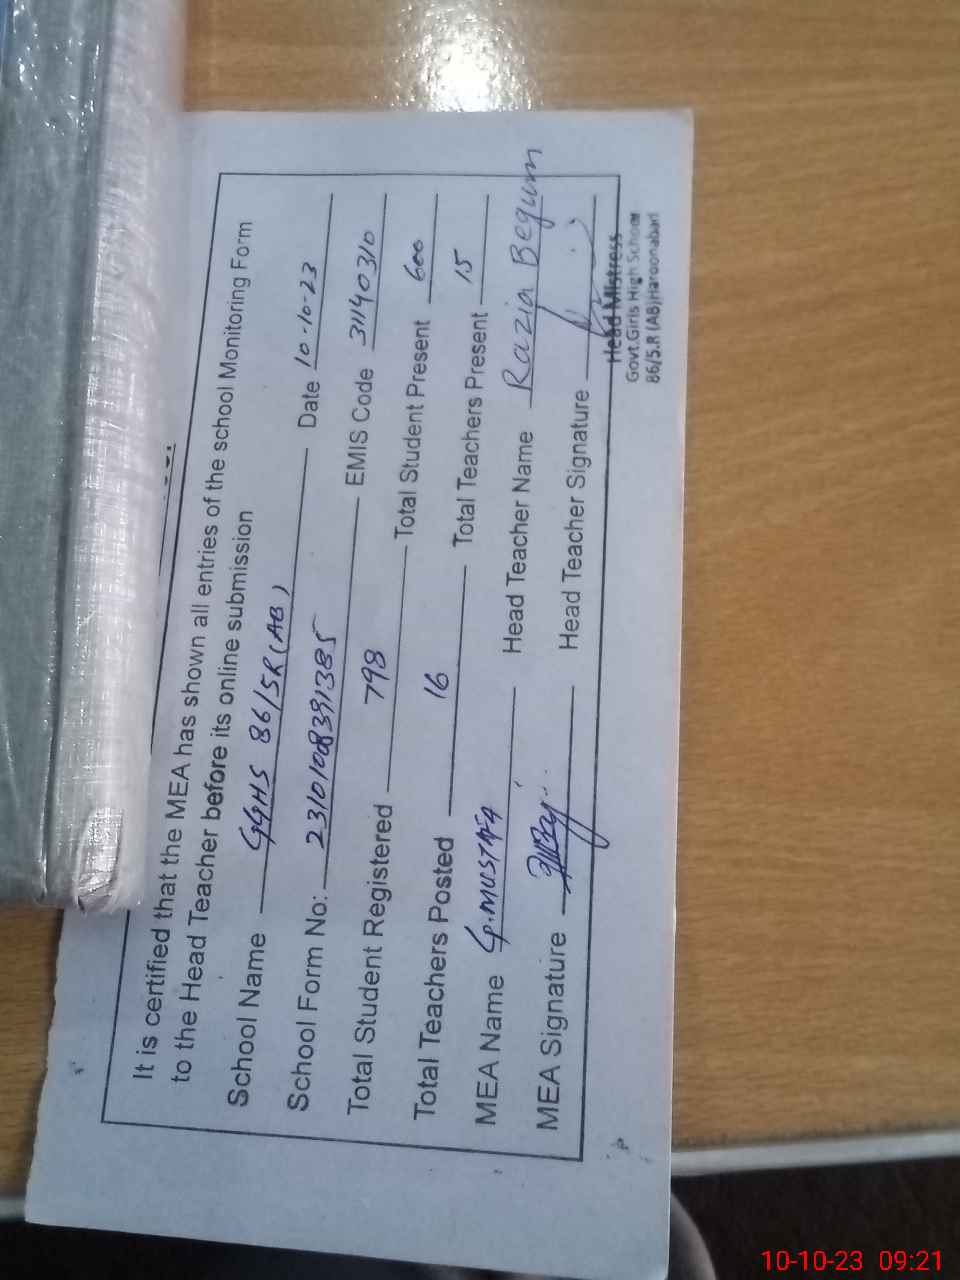 It is certified that the MEA has shown all entries of the school Monitoring Form
to the Head Teacher before its online submission
School Name GGHS 86/5R(AB) Date 10-10-23
School Form No: 2310108391385 EMIS Code 31140310
Total Student Registered 798 Total Student Present 600
Total Teachers Posted 16 Total Teachers Present 15
MEA Name G.MUSTAFA Head Teacher Name Razia Begum
MEA Signature Head Teacher Signature
Head Mistress
Govt.Girls High School
86/5.R (AB)Haroonabad
10-10-23 09:21